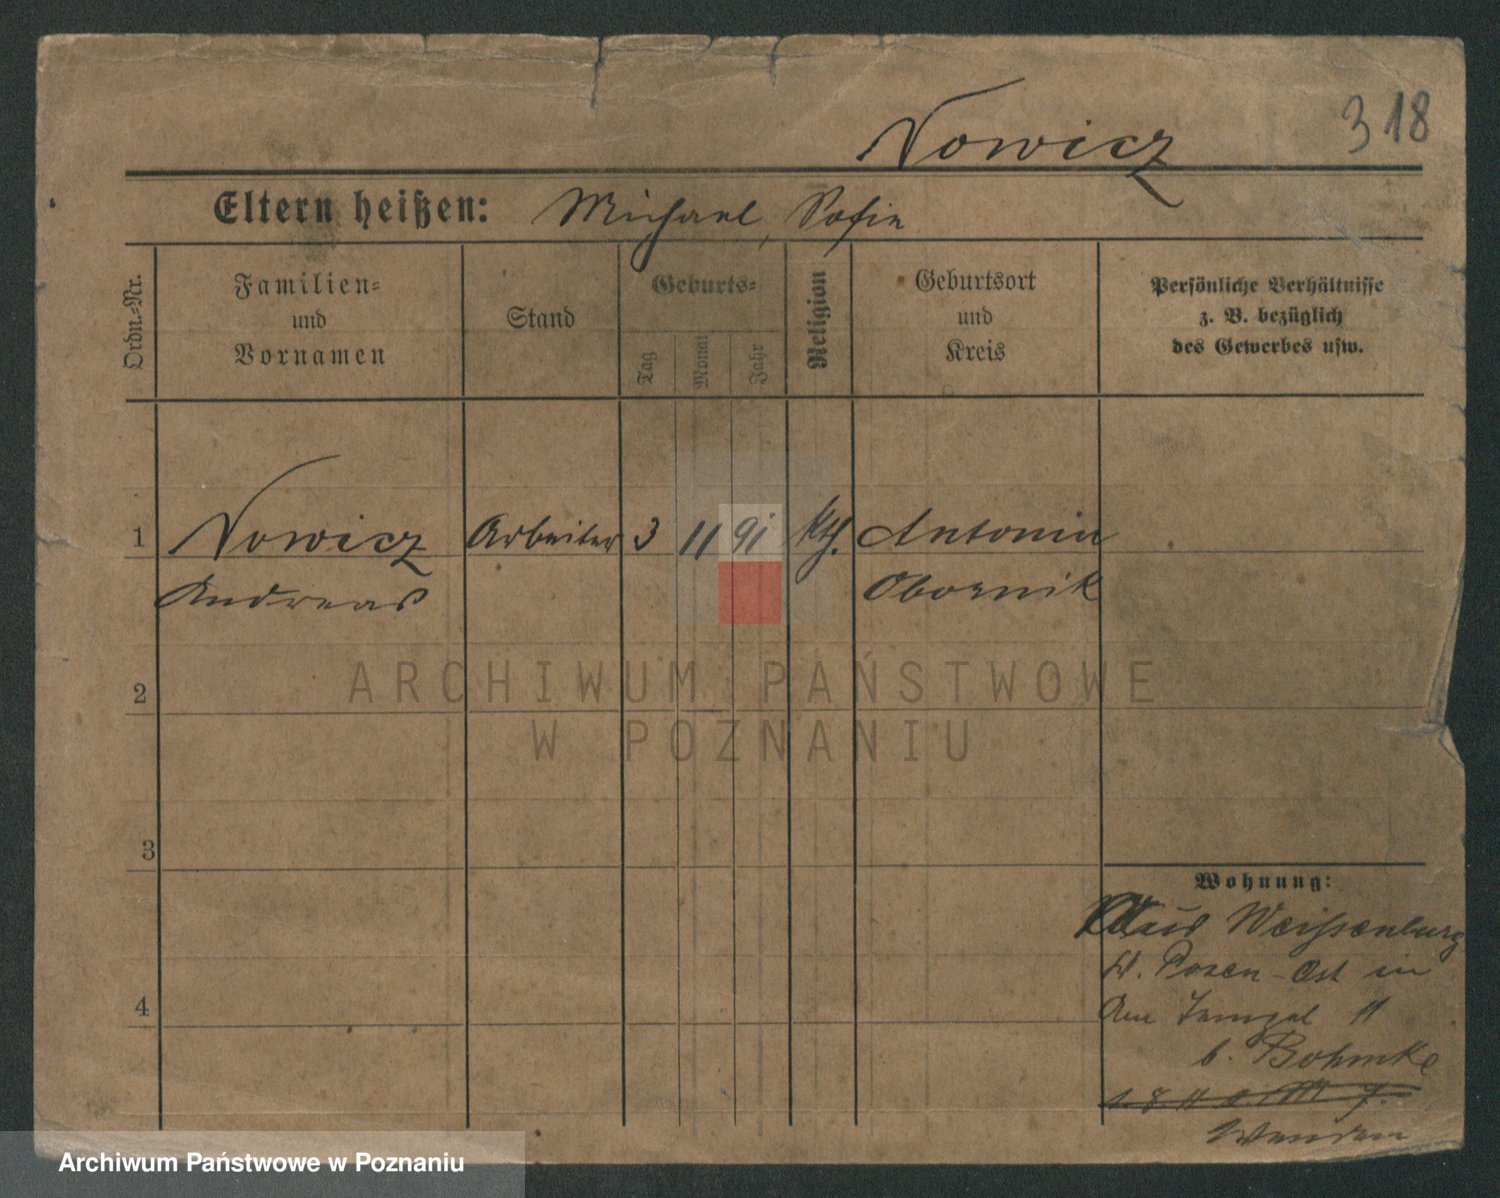 318
Nowicz
Eltern heißen: Michael, Sofie
Ordn.-Nr.
Familien-
und
Vornamen
Stand
Geburts-
Tag
Monat
Jahr
Religion
Geburtsort
und
Kreis
Persönliche Verhältnisse
z. B. bezüglich
des Gewerbes usw.
1 Nowicz Arbeiter 3 11 91 kth. Antonin
Andreas Obornik
2
3
4
Wohnung:
aus Weissenburg
Posen-Ost in
Am 11
b. Bohmke
ARCHIWUM PAŃSTWOWE
W POZNANIU
Archiwum Państwowe w Poznaniu